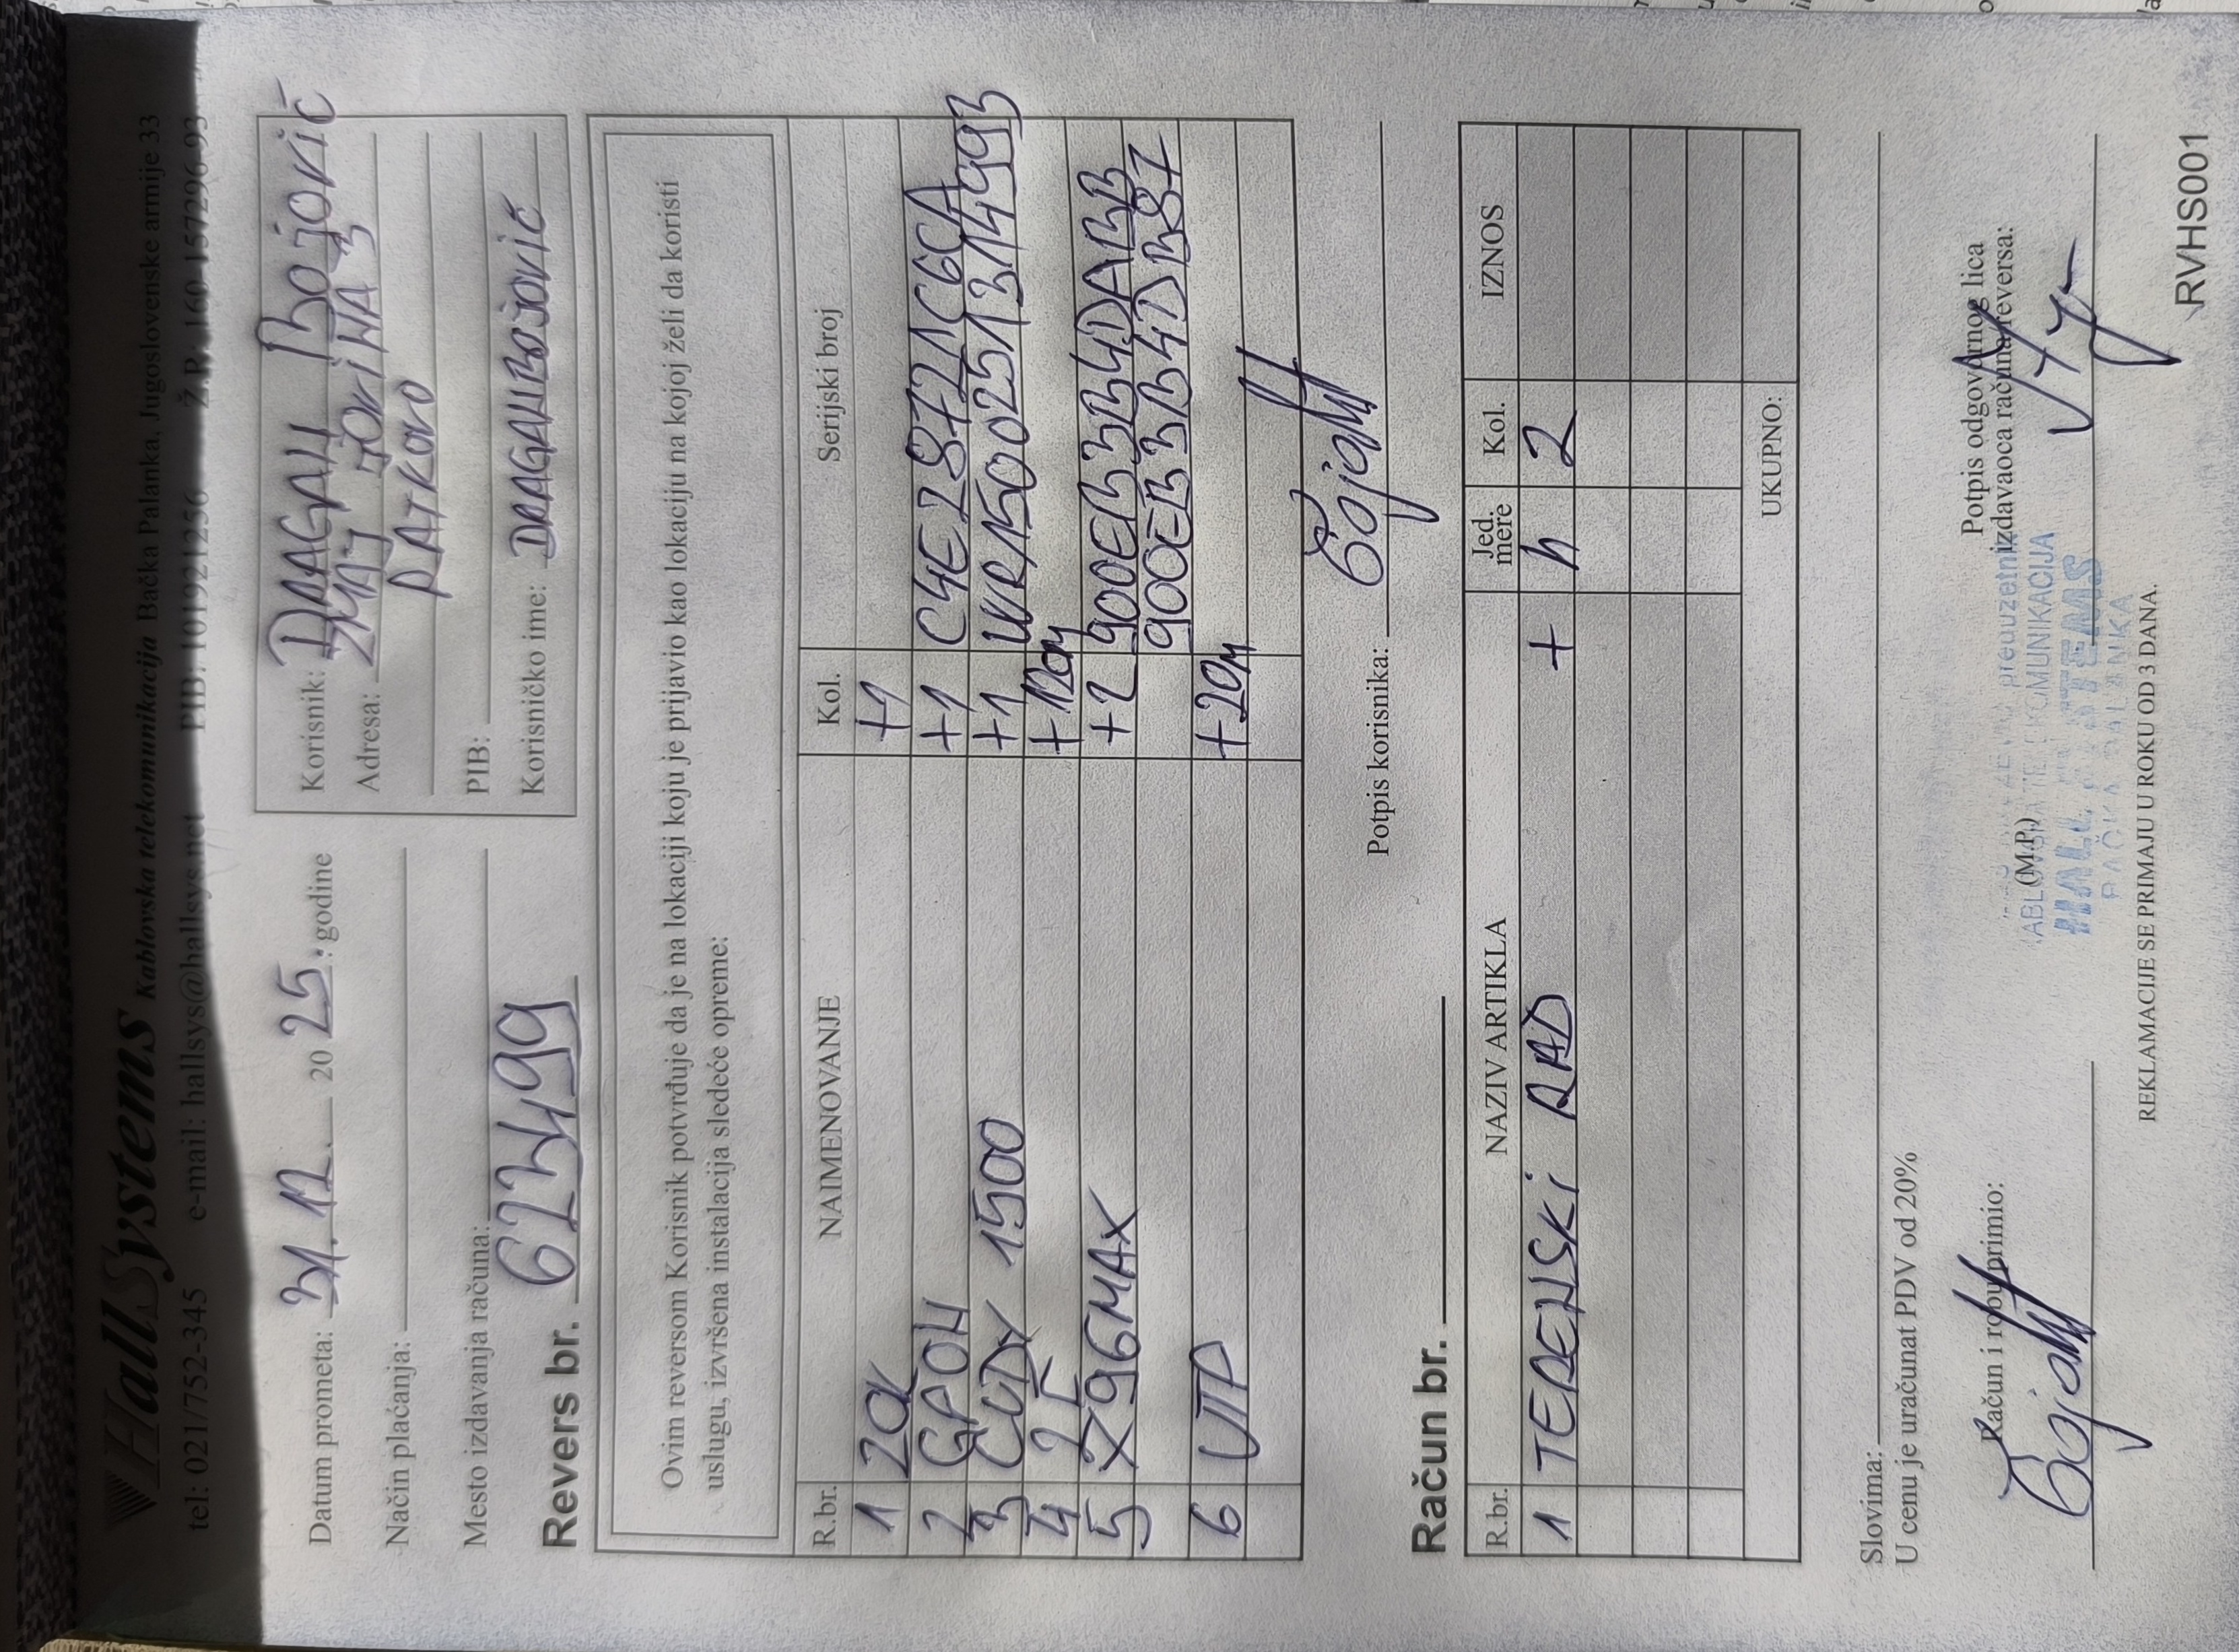 HallSystems Kablovska telekomunikacija Bačka Palanka, Jugoslovenske armije 33
tel: 021/752-345 e-mail: hallsys@hallsys.net PIB: 101921256 Ž.R. 160-157296-93
Datum prometa: 31.12. 2025. godine
Način plaćanja:
Mesto izdavanja računa:
Revers br. 623499
Korisnik: DRAGAN Bojović
Adresa: ZMAJ JOViNA 3
RATKOVO
PIB:
Korisničko ime: DRAGANBOJOVIĆ
Ovim reversom Korisnik potvrđuje da je na lokaciji koju je prijavio kao lokaciju na kojoj želi da koristi
uslugu, izvršena instalacija sledeće opreme:
R.br. NAIMENOVANJE Kol. Serijski broj
1 ZOK +1
2 GPON +1 C4E28721C6CA
3 CUDY 1500 +1 WR1500251314993
4 2F +120m
5 X96MAX +2 900EB3B4DABB
900EB3B4DB87
6 UTP +20m
Potpis korisnika:
Račun br.
R.br. NAZIV ARTIKLA Jed. mere Kol. IZNOS
1 TERENSKi RAD + h 2
UKUPNO:
Slovima:
U cenu je uračunat PDV od 20%
Račun i robu primio:
(M.P.)
KABLOVSKA TELEKOMUNIKACIJA
HALL SYSTEMS
BAČKA PALANKA
Potpis odgovornog lica
izdavaoca računa/reversa:
REKLAMACIJE SE PRIMAJU U ROKU OD 3 DANA.
RVHS001